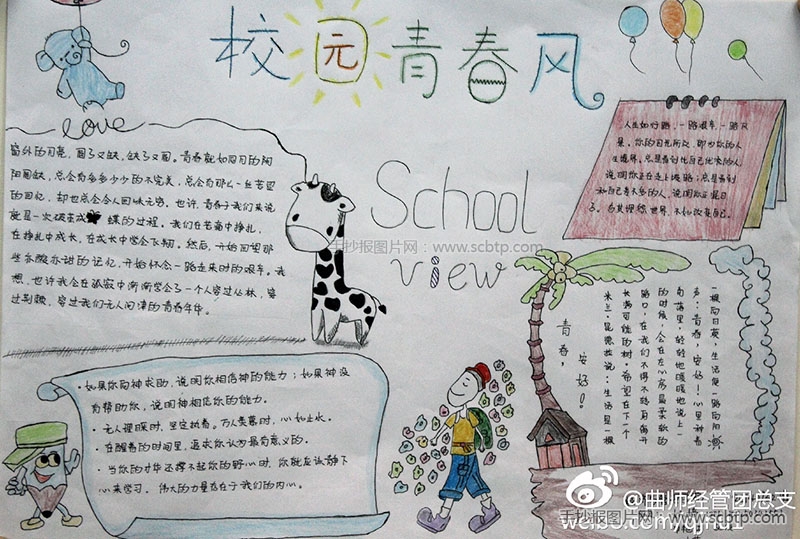 校园青春风
love
窗外的月亮，圆了又缺，缺了又圆。青春就如同月的阴
阳圆缺，总会有多多少少的不完美，总会有那么一丝苦涩
的回忆，却也总会令人回味无穷。也许，青春于我们来说
就是一次破茧成蝶的过程。我们在茧当中挣扎，
在挣扎中成长，在成长中学会飞翔。然后，开始回望那
些各酸亦甜的记忆，开始怀念一路走来时的艰辛。我
想，也许我会在孤寂中渐渐学会了一个人穿过丛林，穿
过荆棘，穿过我们无人问津的青春年华。
School
view
人生如行路，一路艰辛，一路风
景。你的目光所及，即也你的人
生境界。总是看到比自己优秀的人，
说明你正在走上坡路；总是看到
和自己差不多的人，说明你正混日
子。与其埋怨世界，不如改变自己。
手抄报图片网：www.scbtp.com
一根向日葵，生活是一路向阳
声：青春，安好！心里种着
角落里，轻轻地暖暖地说上一
的时候，会在左心房最柔软的
路口，在我们不得不转身离开
长满可能的树。希望在下一个
米兰·昆德拉说：生活是一棵
青春，
安好！
·如果你向神求助，说明你相信神的能力；如果神没
有帮助你，说明神相信你的能力。
·无人理睬时，坚定执着。万人羡慕时，心如止水。
·在醒着的时间里，追求你认为最有意义的。
·当你的才华还撑不起你的野心时，你就应该静下
心来学习。伟大的力量存在于我们的内心。
@曲师经管团总支
手抄报图片网：www.scbtp.com